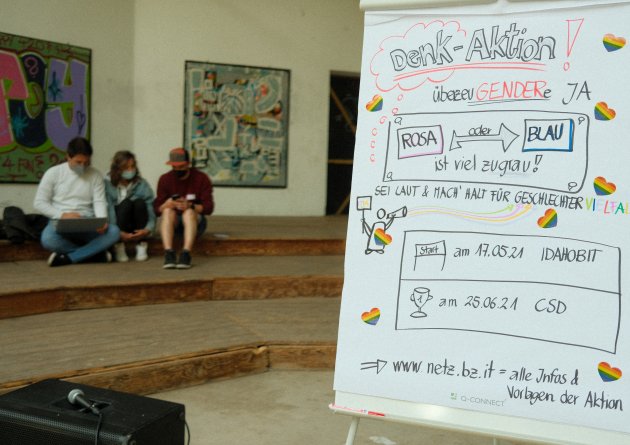 Denk-Aktion!
überzeuGENDERe JA
ROSA oder BLAU
ist viel zugrau!!
SEI LAUT & MACH' HALT FÜR GESCHLECHTERVIELFALT
Start am 17.05.21 IDAHOBIT
1 am 25.06.21 CSD
⇒ www.netz.bz.it = alle Infos &
Vorlagen der Aktion
Q-CONNECT